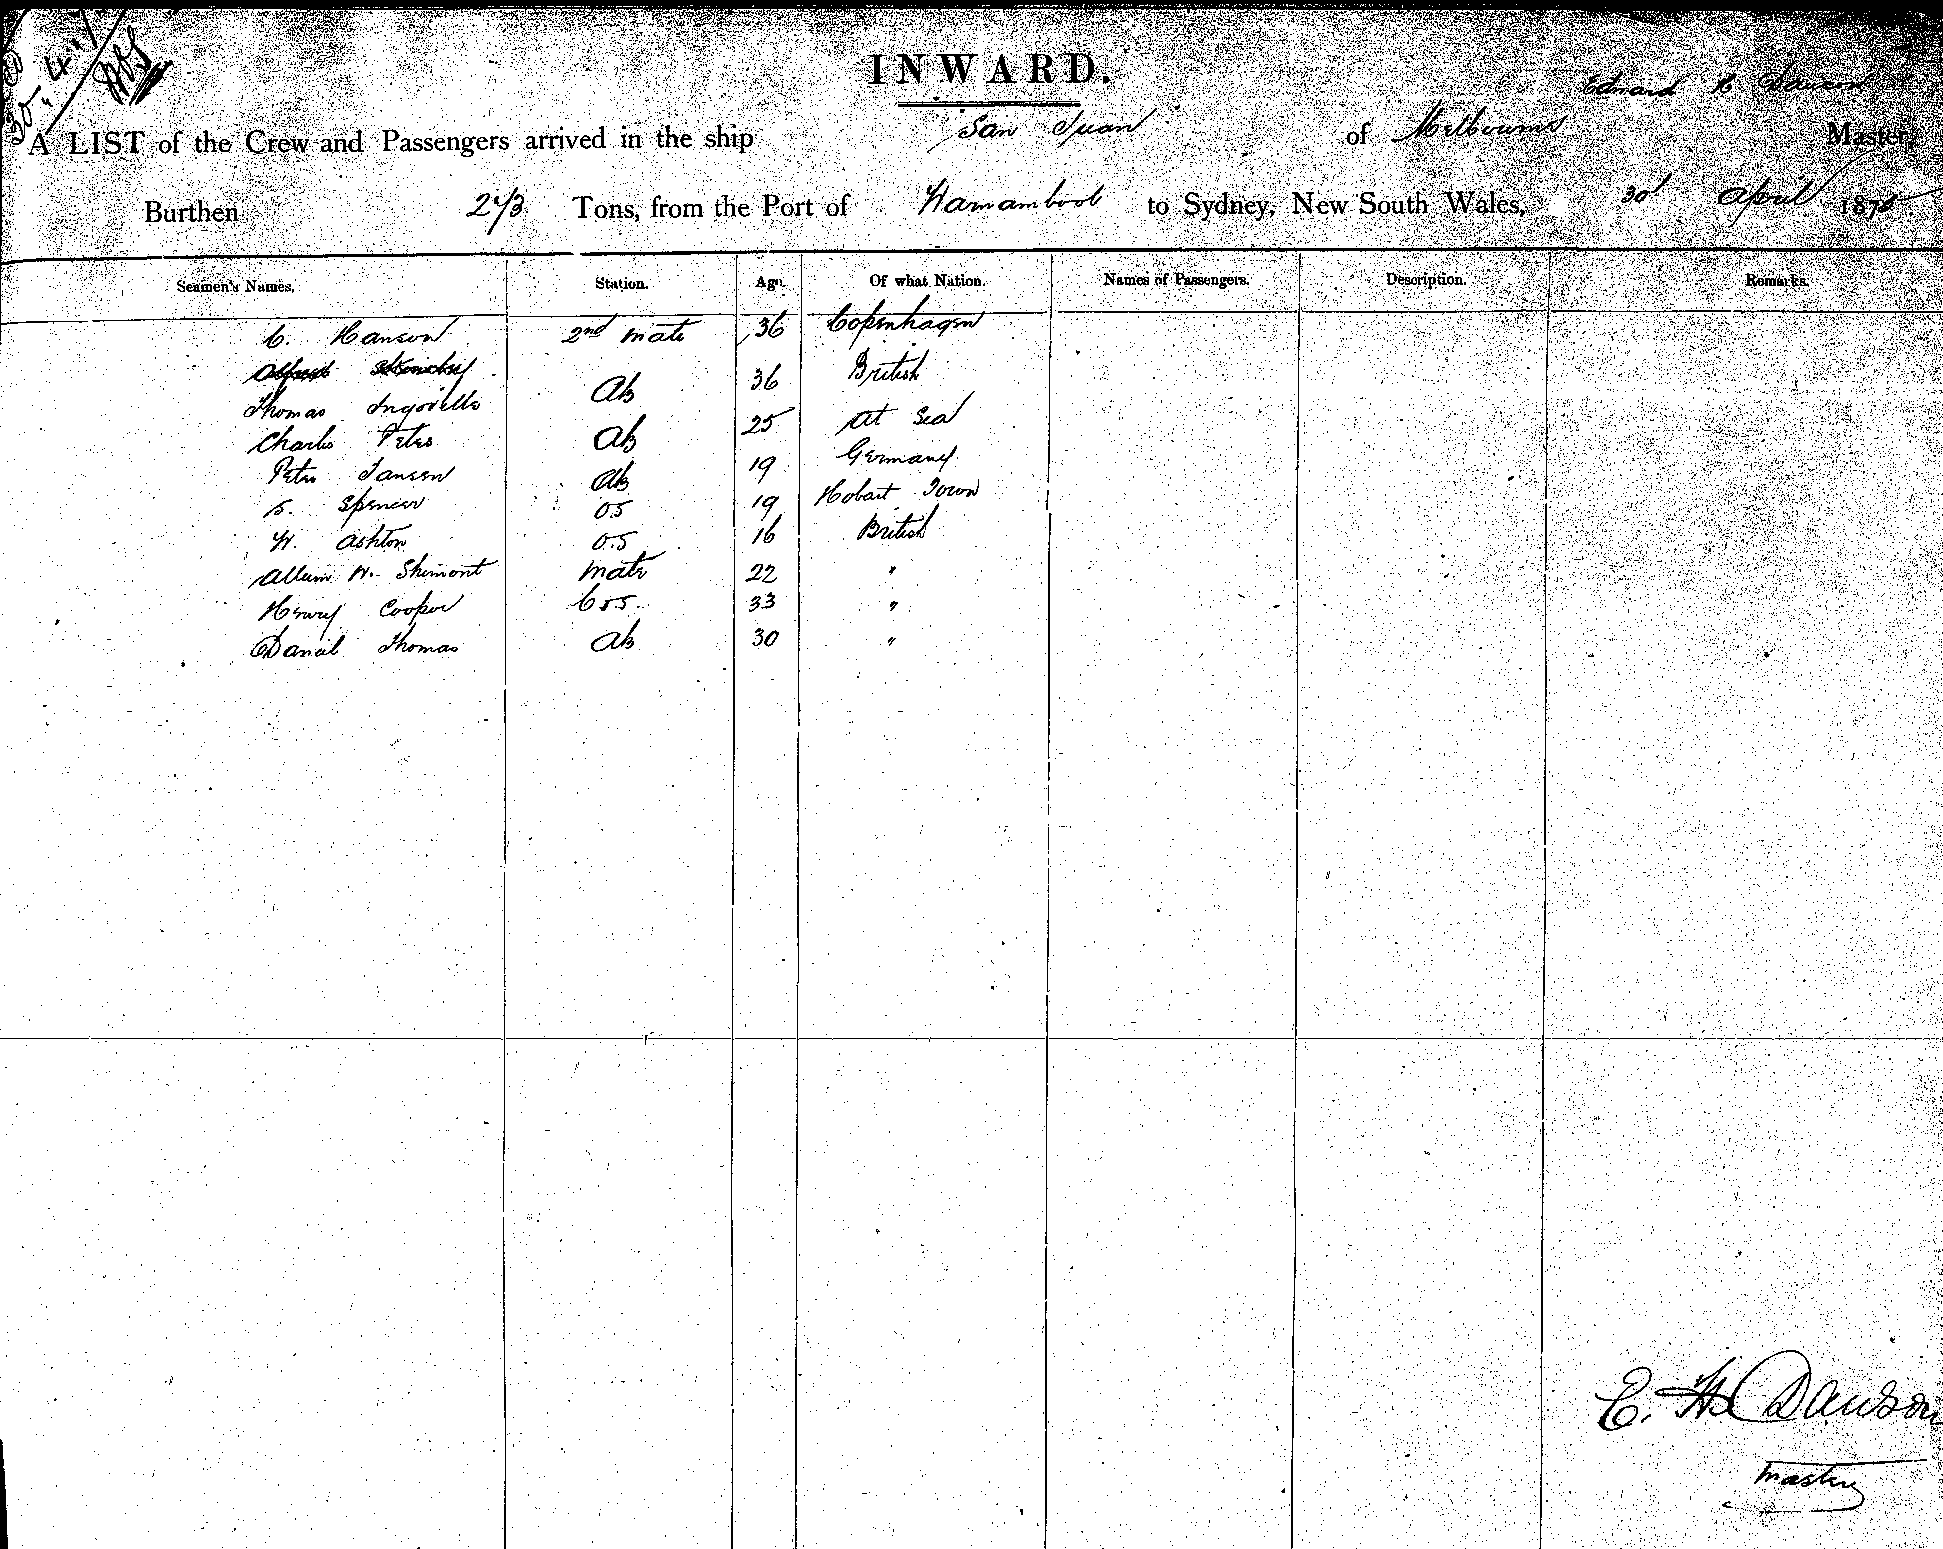 30 " 4 "
INWARD.
Edward H Dawson
A LIST of the Crew and Passengers arrived in the ship San Juan of Melbourne Master,
Burthen 243 Tons, from the Port of Warnambool to Sydney, New South Wales, 30 April 187
Seamen's Names. Station. Age. Of what Nation. Names of Passengers. Description. Remarks.
C. Hanson 2nd Mate 36 Copenhagen
Thomas Ingoville AB 36 British
Charles Peters AB 25 At Sea
Peter Jansen AB 19 Germany
S. Spencer OS 19 Hobart Town
W. Ashton O.S 16 British
W. Mate 22 "
Henry Cooper 33 "
Daniel Thomas AB 30 "
E. H. Dawson
Master